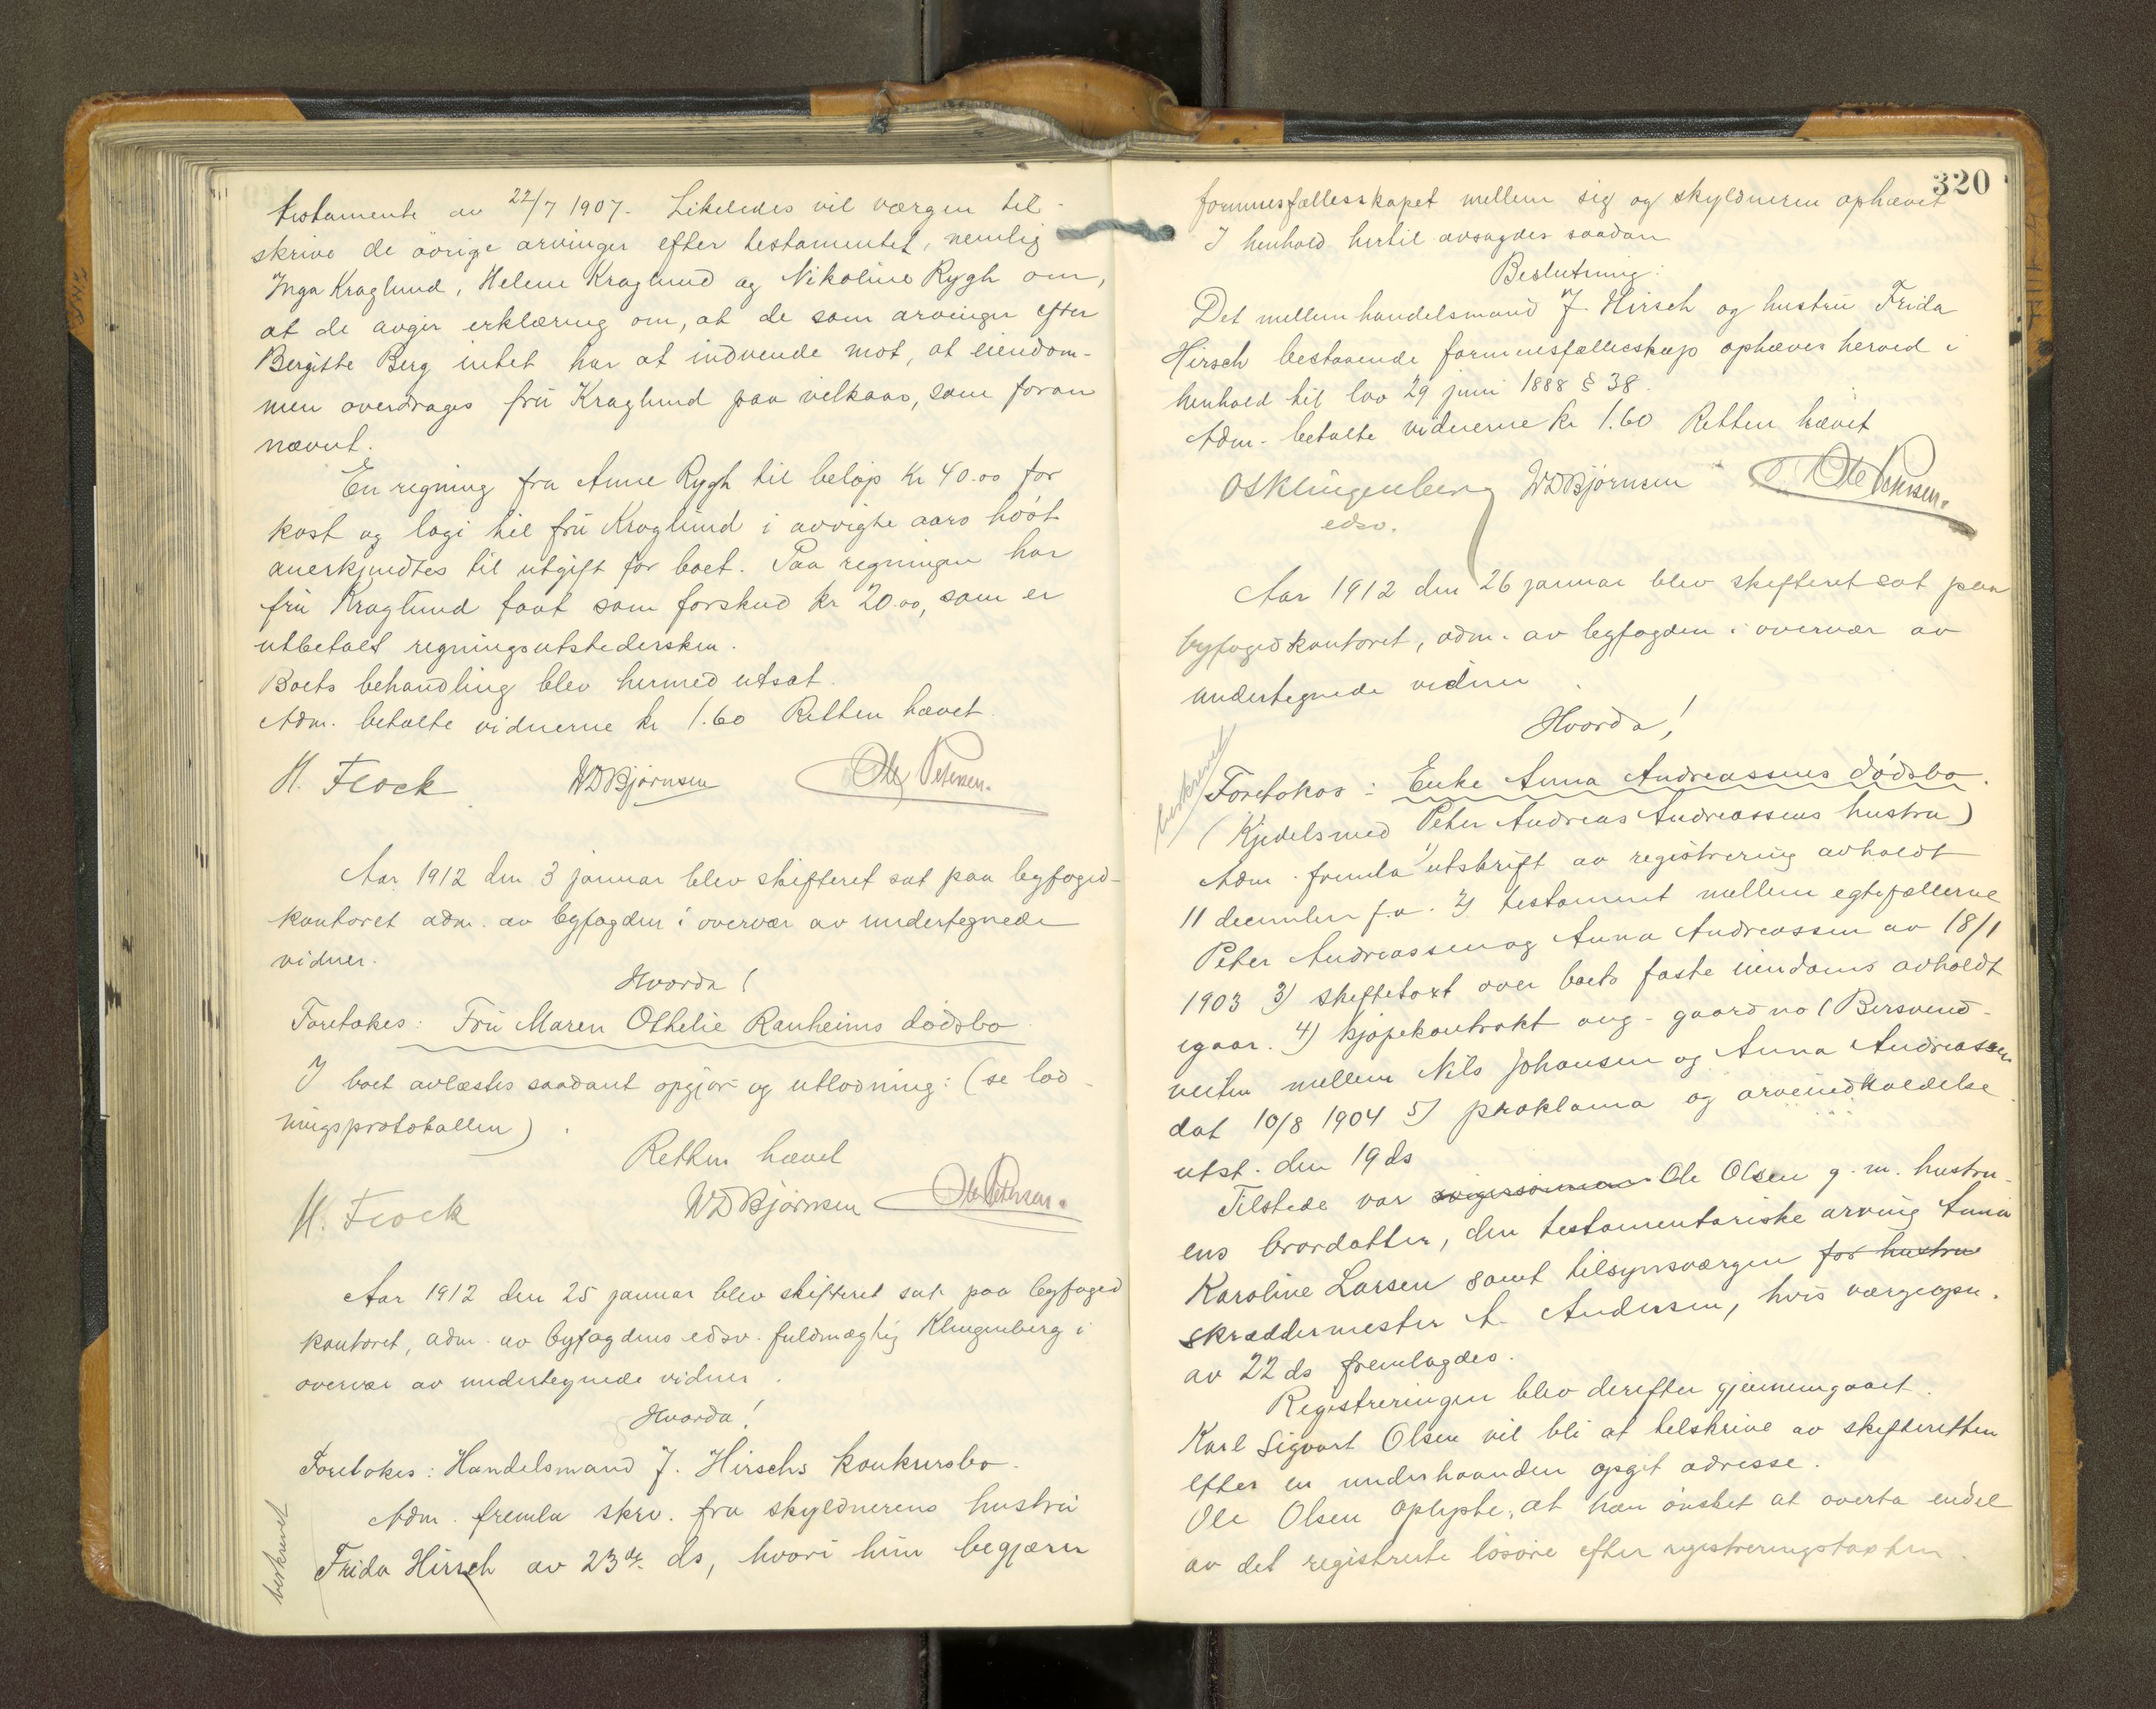 testamente av 22/7 1907. Likeledes vil værgen til-
skrive de övrige arvinger efter testamentet, nemlig
Inga Kraglund, Helene Kraglund og Nikoline Rygh om,
at de avgir erklæring om, at de som arvinger efter
Bergitte Berg intet har at indvende mot, at eiendom-
men overdrages frú Kraglund paa vilkaar, som foran
nævnt.
En regning fra Anne Rygh til beløp kr 40.00 for
kost og logi til frú Kraglund i avvigte aars höst
anerkjendtes til utgift for boet. Paa regningen har
frú Kraglund faat som forskud kr 20.00, som er
utbetalt regningsutstedersken.
Boets behandling blev hermed utsat.
Adm. betalte vidnerne kr 1.60 Retten hævet.
H. Flock WDBjørnsen Ole Petersen.
Aar 1912 den 3 januar blev skifteret sat paa byfoged-
kontoret adm. av byfogden i overvær av undertegnede
vidner.
Hvorda!
Foretokes: Frú Maren Othelie Ranheims dödsbo
I boet avlæstes saadant opgjør og utlodning: (se lod-
ningsprotokollen).
Retten hævet
H. Flock WDBjørnsen Ole Petersen.
Aar 1912 den 25 januar blev skifteret sat paa byfoged
kontoret, adm. av byfogdens edsv. fuldmægtig Klingenberg i
overvær av undertegnede vidner.
Hvorda!
Foretokes: Handelsmand J. Hirschs konkursbo.
Adm. fremla skrv. fra skyldnerens hustrú
beskrevet
Frida Hirsch av 23de ds, hvori hún begjærer
320
formuesfællesskapet mellem sig og skyldneren ophævet
I henhold hertil avsagdes saadan
Beslutning:
Det mellem handelsmand J. Hirsch og hustrú Frida
Hirsch bestaaende formuesfællesskap ophæves herved i
henhold til lov 29 juni 1888 § 38.
Adm. betalte vidnerne kr 1.60 Retten hævet
OSKlingenberg WDBjørnsen Ole Petersen.
edsv.
Aar 1912 den 26 januar blev skifteret sat paa
byfogedkontoret, adm. av byfogden i overvær av
undertegnede vidner.
Hvorda!
beskrevet
Foretokes: Enke Anna Andreassens dödsbo.
(Kjedelsmed Peter Andreas Andreassens hustru)
Adm. fremla 1) utskrift av registrering avholdt
11 december f.a. 2) testament mellem egtefællerne
Peter Andreassen og Anna Andreassen av 18/1
1903 3) skiftetaxt over boets faste eiendoms avholdt
igaar. 4) kjøpekontrakt ang. gaard no 1 Bersvend-
veiten mellem Nils Johansen og Anna Andreassen
dat 10/8 1904 5) proklama og arveindkaldelse
utst. den 19 ds
Tilstede var svigersönnen Ole Olsen g. m. hustru-
ens brordatter, den testamentariske arving Anna
Karoline Larsen samt tilsynsværgen for hustru
skræddermester A. Andersen, hvis værgeopn.
av 22 ds fremlagdes.
Registreringen blev derefter gjennemgaaet.
Karl Sigvart Olsen vil bli at tilskrive av skifteretten
efter en underhaanden opgit adresse.
Ole Olsen oplyste, at han önsket at overta endel
av det registrerte lösöre efter registreringstaxten.